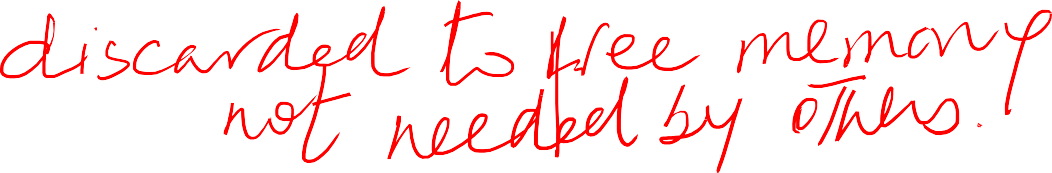 discarded to free memory
not needed by others.